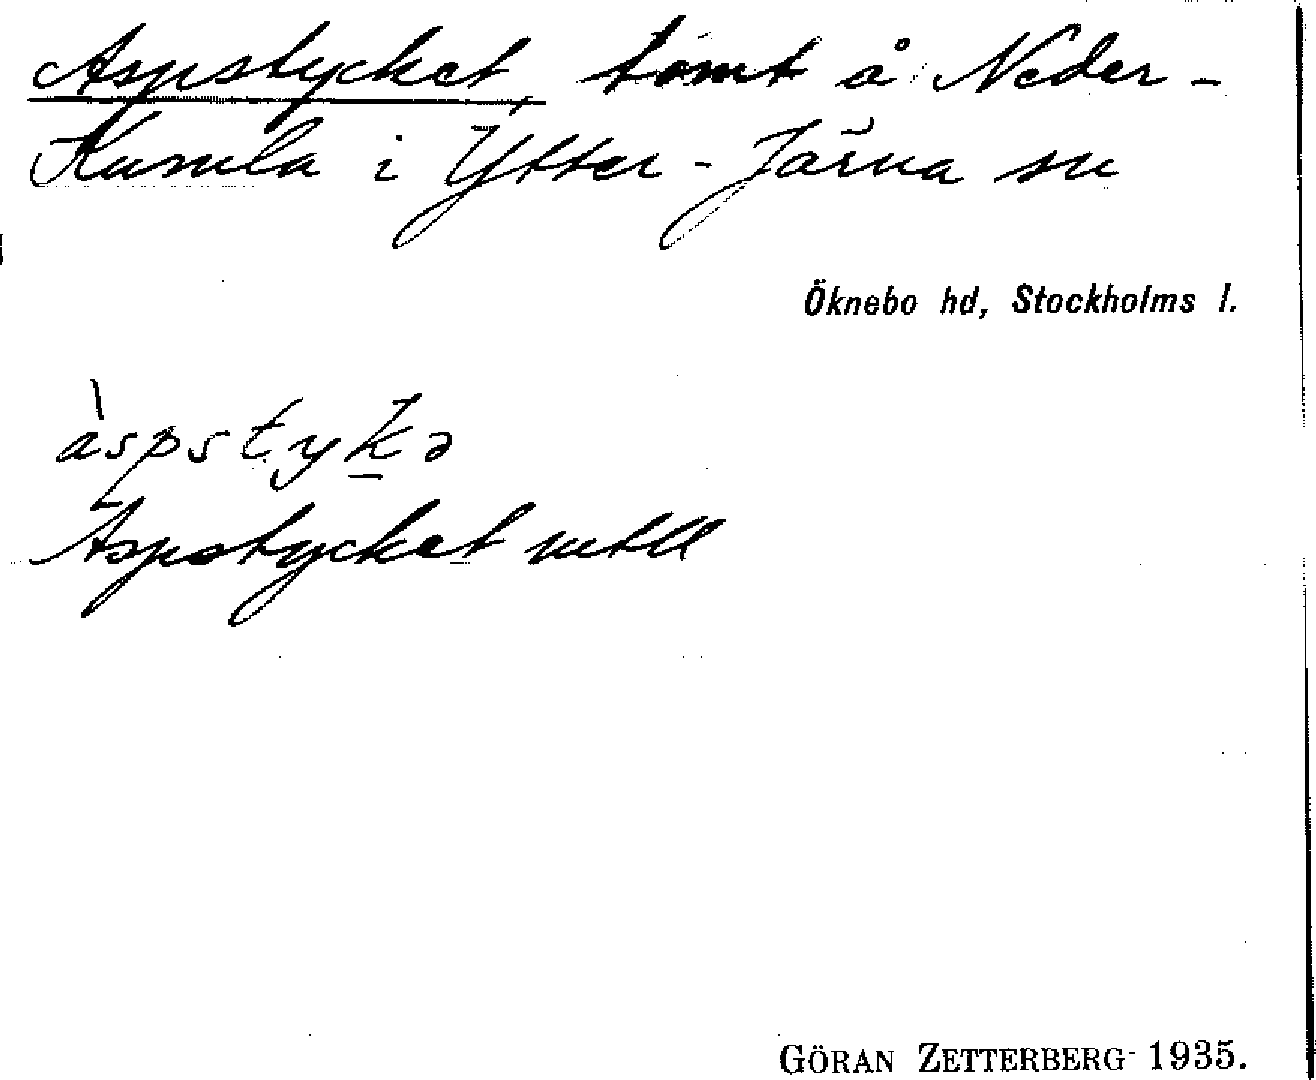 Aspstycket, tomt å Neder-
Kumla i Ytter-Järna sn
Öknebo hd, Stockholms l.
àspstykə
Aspstycket mtll
GÖRAN ZETTERBERG 1935.